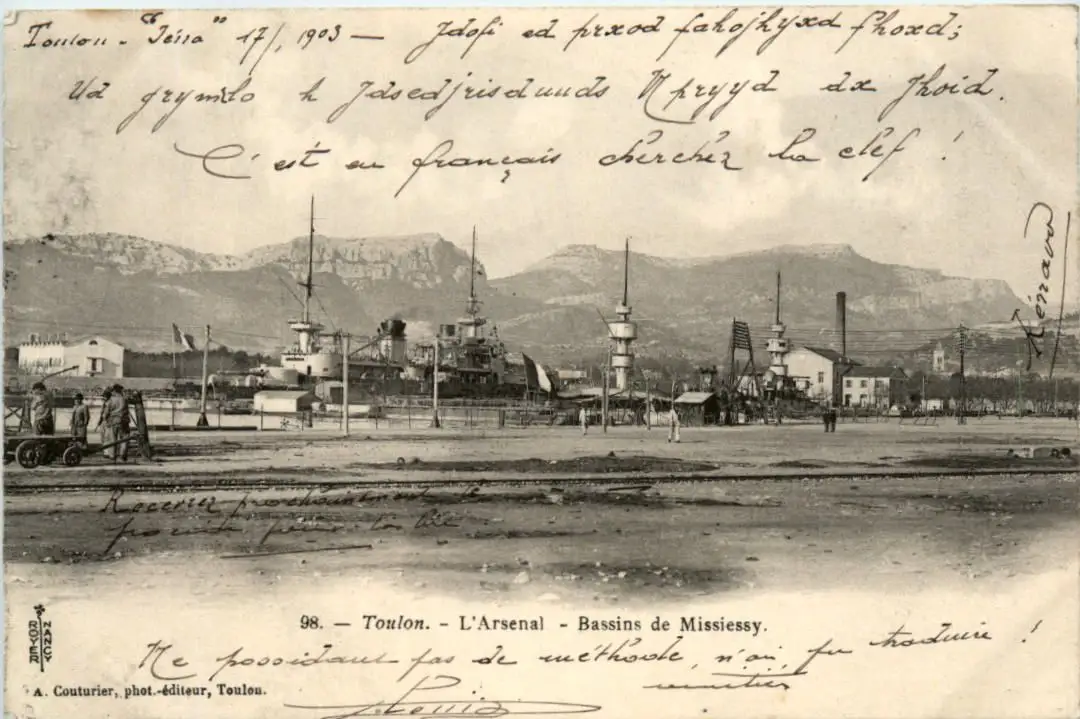 Toulon - "Iéna" 17/, 1903 — Jdofi ed prxod fahojhyxd fhoxd;
Ud grymélo h Jdsedjrisdunds Mpryyd dx Jhoid.
C'est en français cherchez la clef !
Recevrez prochainement le
procédé pour la clé
98. — Toulon. - L'Arsenal - Bassins de Missiessy.
ROYER
NANCY
Ne possédant pas de méthode, n'ai pu traduire !
A. Couturier, phot.-éditeur, Toulon.